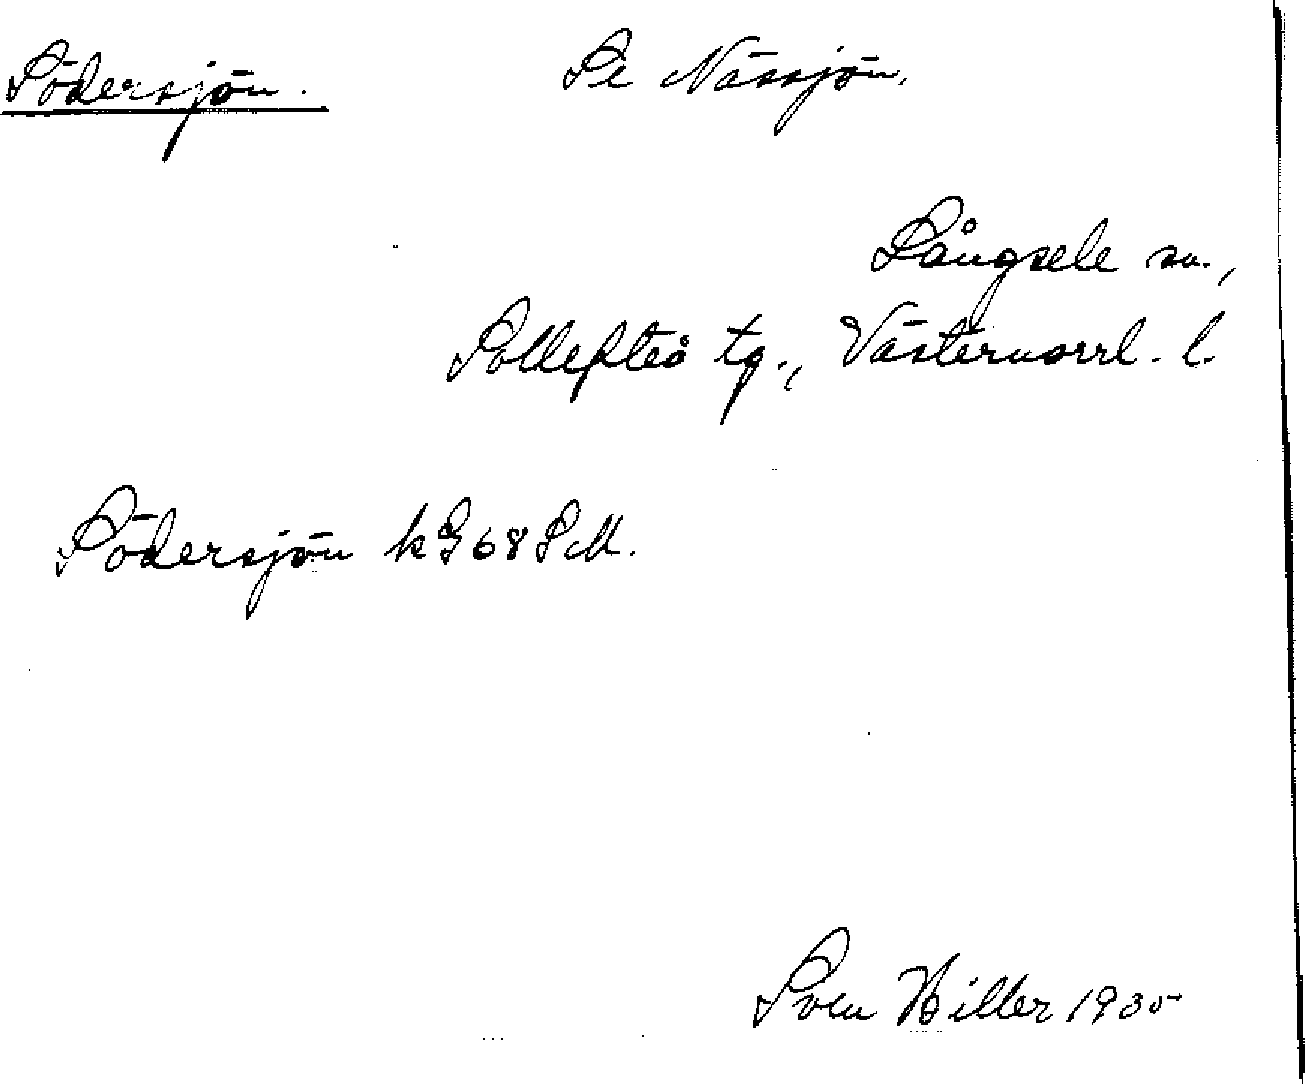 Södersjön. Se Nässjön.
Långsele sn.,
Sollefteå tg., Västernorrl. l.
Södersjön k G 68 SM.
Sven Hiller 1935